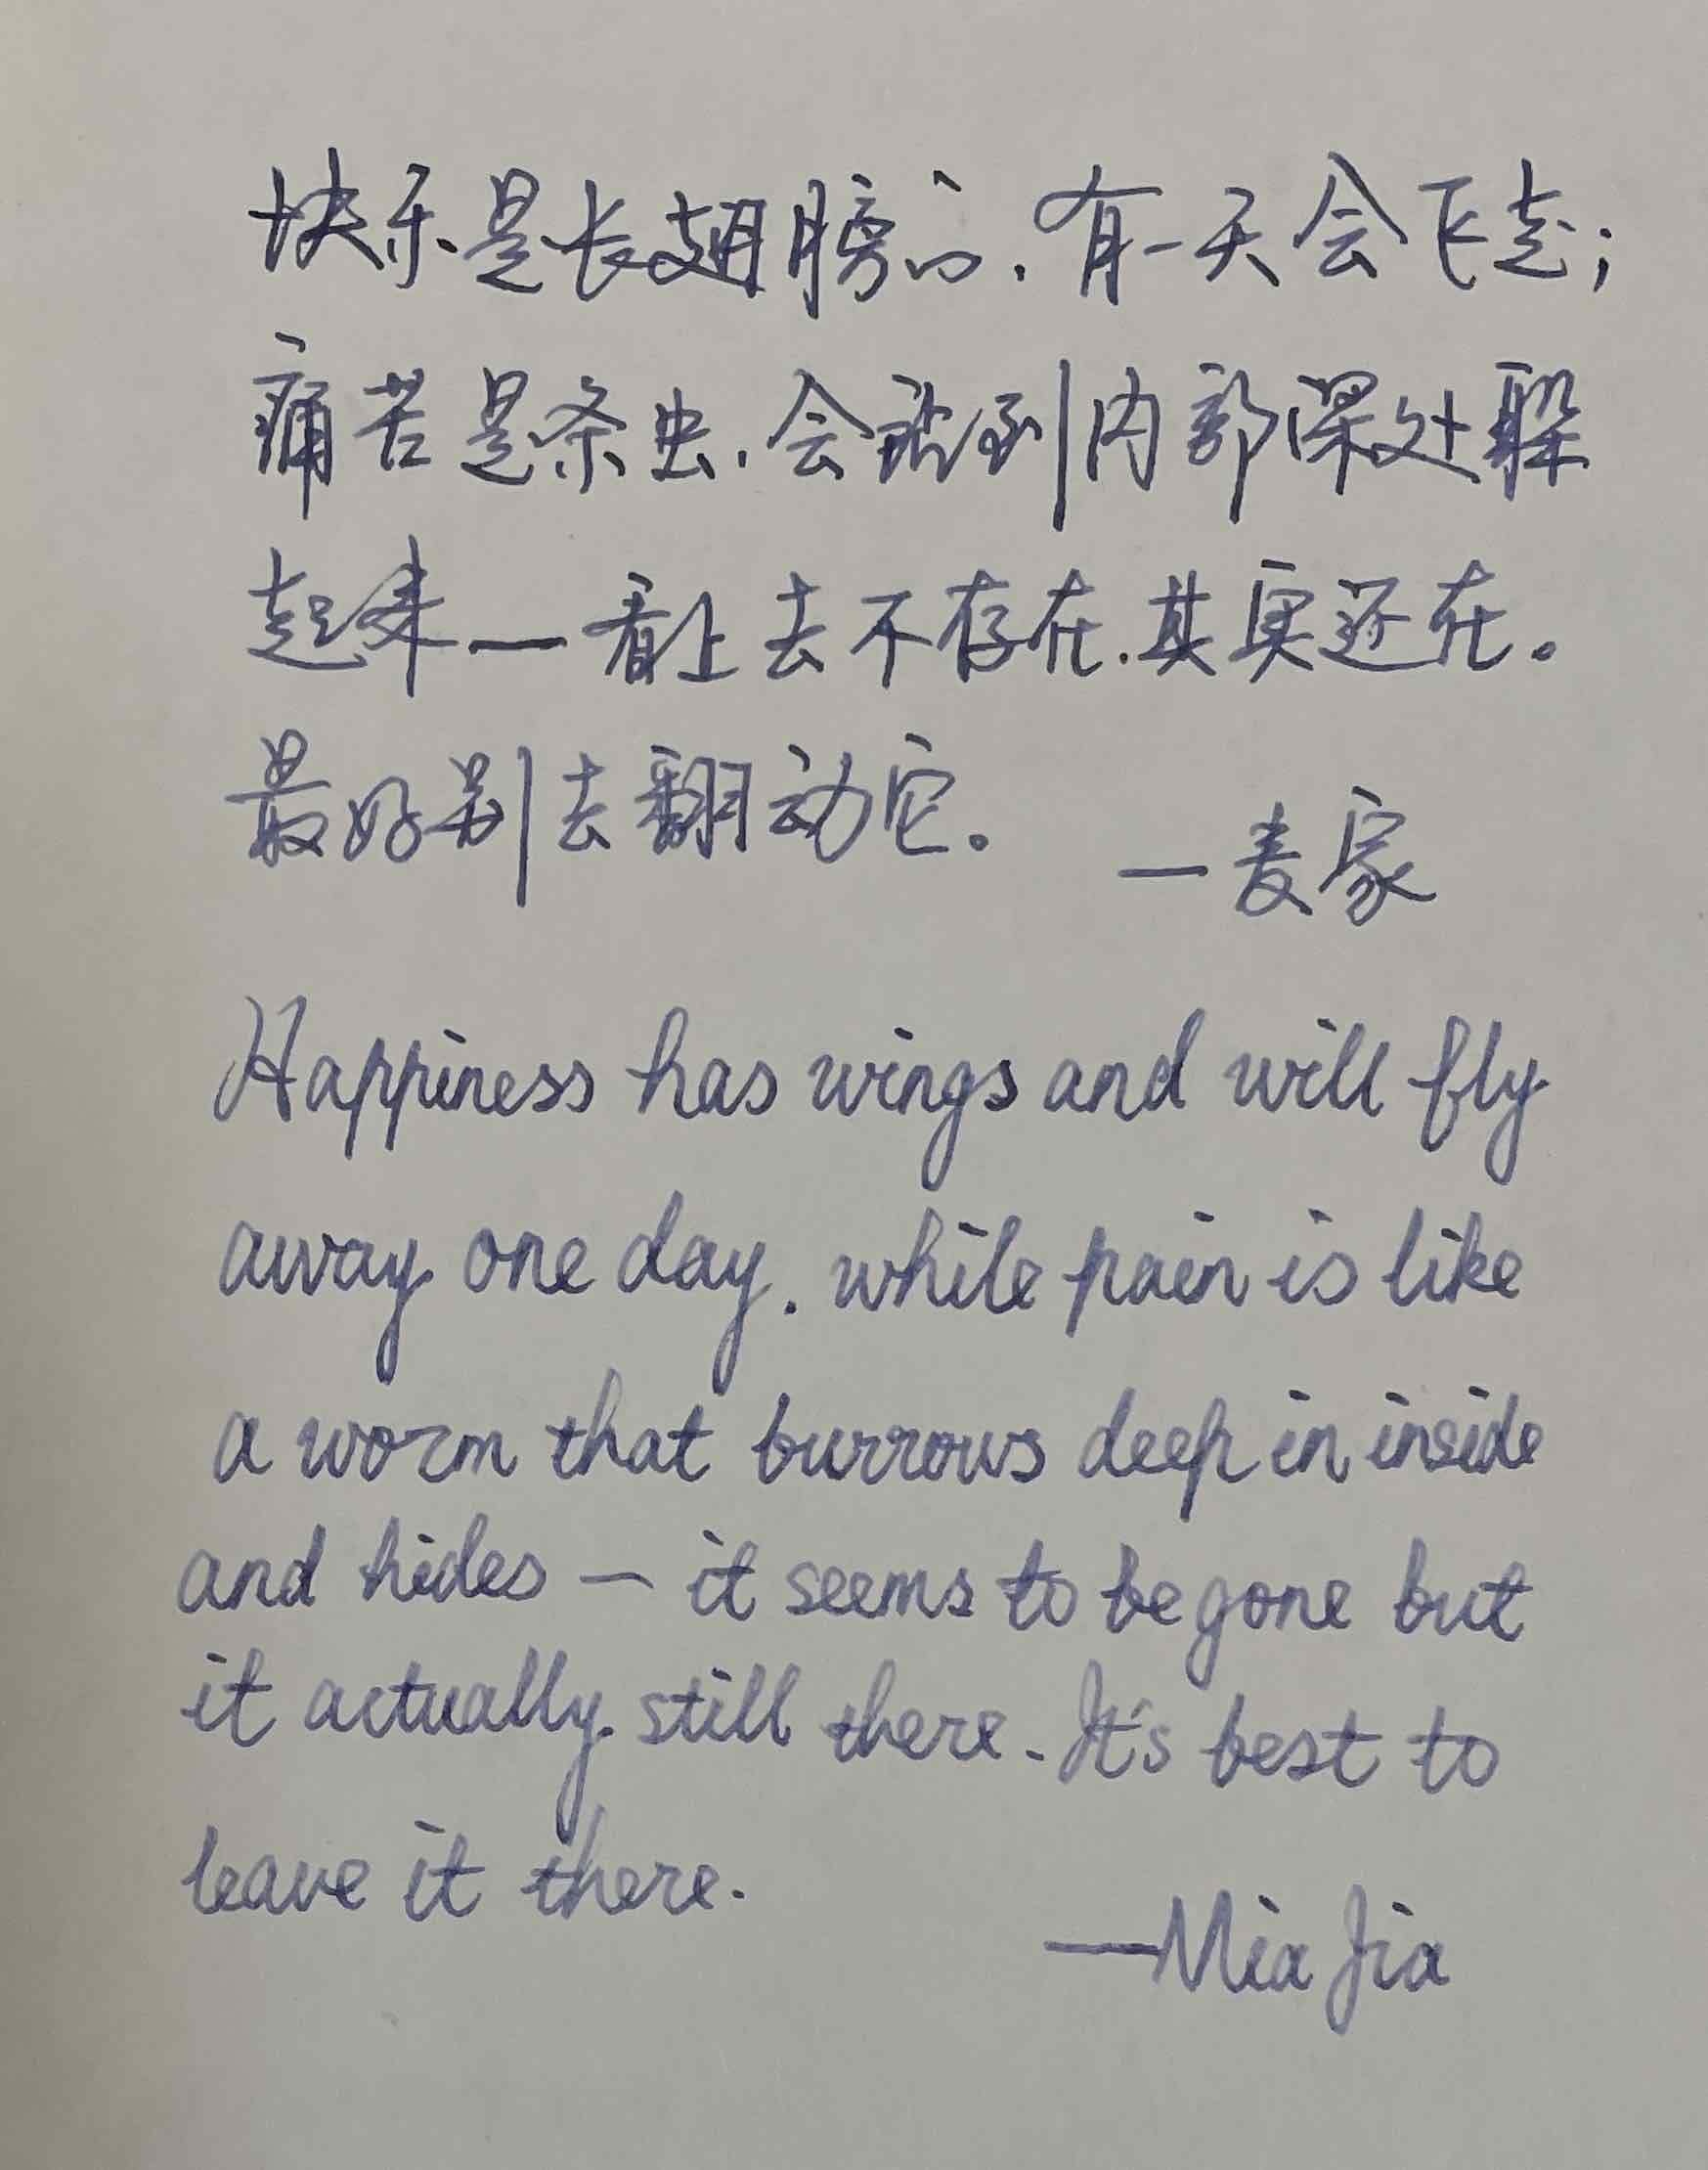 快乐是长翅膀的,有一天会飞走;
痛苦是条虫,会钻到内部深处躲
起来—看上去不存在,其实还在。
最好别去翻动它。
—麦家
Happiness has wings and will fly
away one day. while pain is like
a worm that burrows deep in inside
and hides — it seems to be gone but
it actually still there. It's best to
leave it there.
—Mia Jia